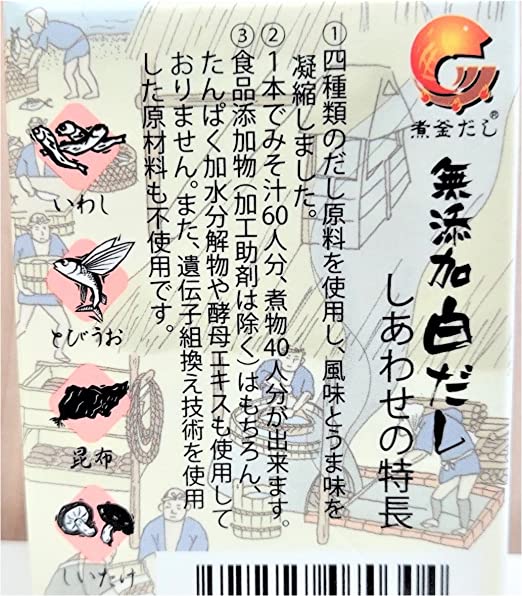 煮釜だし®
無添加白だし
しあわせの特長
①四種類のだし原料を使用し、風味とうま味を
凝縮しました。
②1本でみそ汁60人分、煮物40人分が出来ます。
③食品添加物(加工助剤は除く)はもちろん、
たんぱく加水分解物や酵母エキスも使用して
おりません。また、遺伝子組換え技術を使用
した原材料も不使用です。
いわし
とびうお
昆布
しいたけ